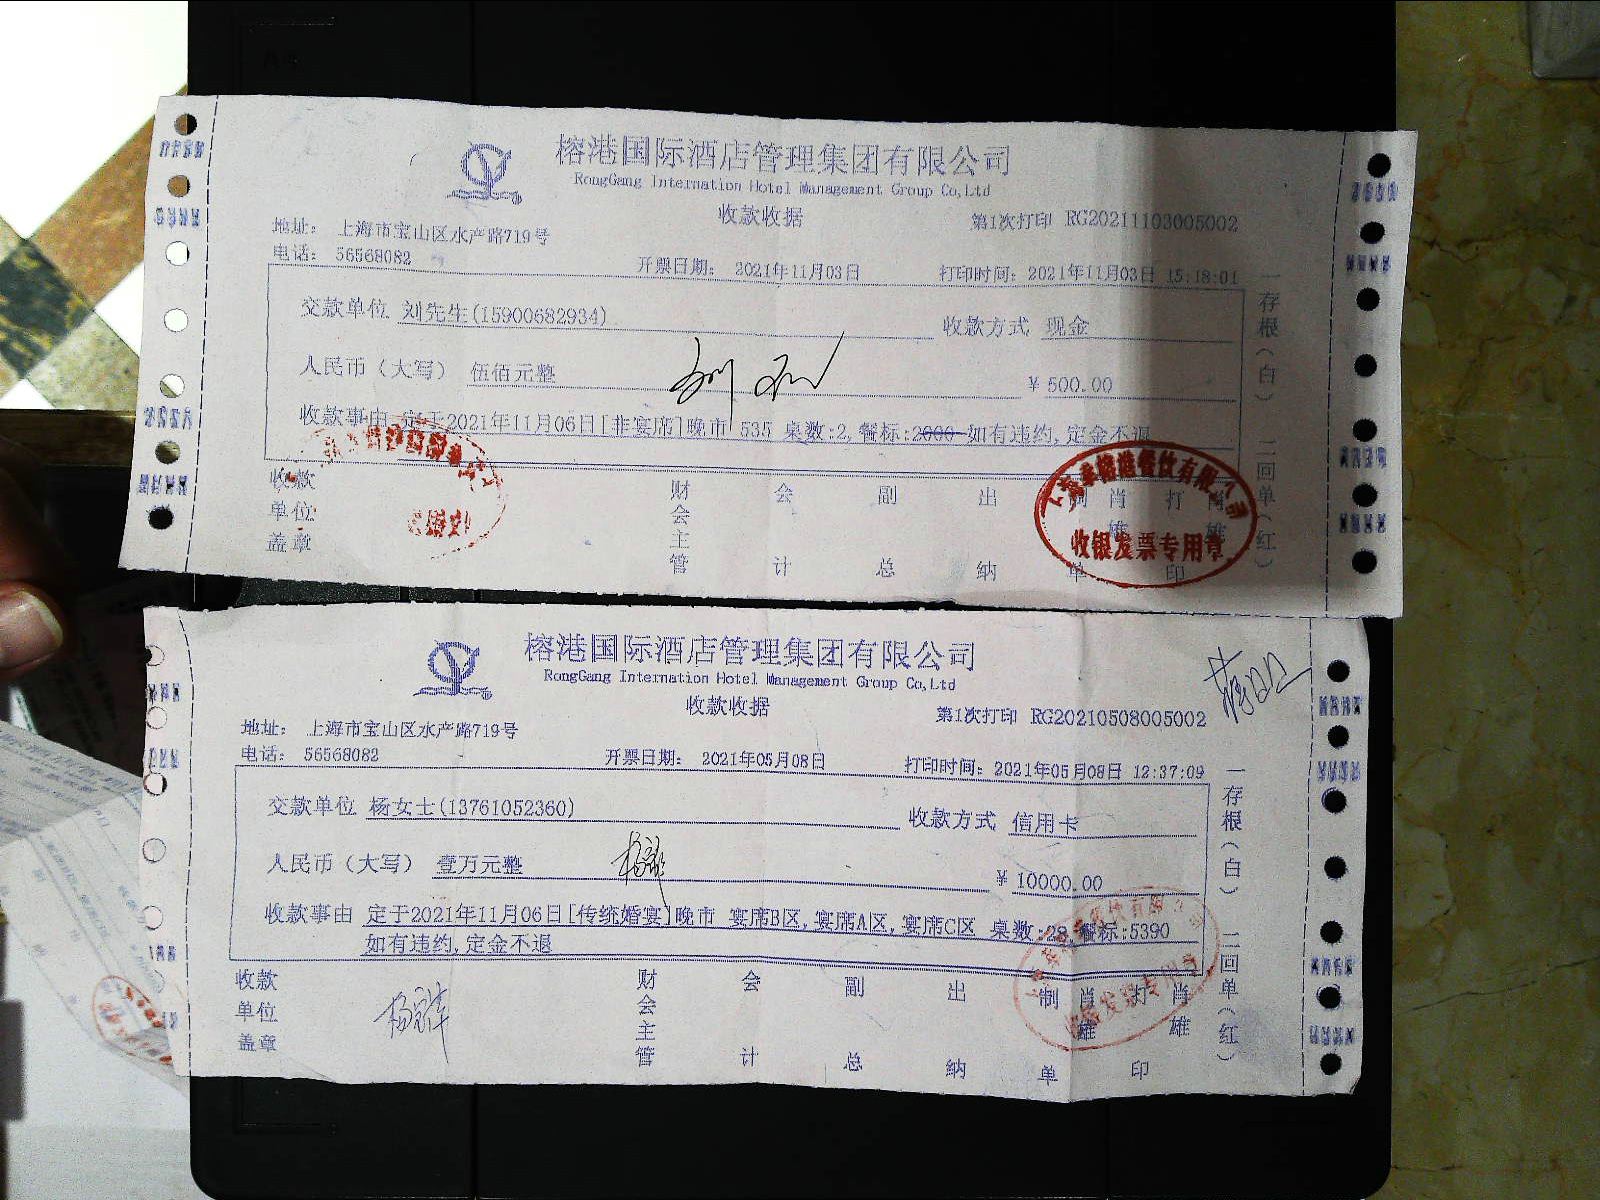 榕港国际酒店管理集团有限公司
RongGang Internation Hotel Management Group Co,Ltd
收款收据
第1次打印 RG20211103005002
地址： 上海市宝山区水产路719号
电话： 56568082
开票日期： 2021年11月03日
打印时间：2021年11月03日 15:18:01
交款单位 刘先生(15900682934)
收款方式 现金
人民币（大写） 伍佰元整
￥500.00
收款事由 定于2021年11月06日[非宴席]晚市 535 桌数:2,餐标:2000 如有违约,定金不退
收款单位盖章
财会主管
会计
副总
出纳
制单
肖雄
打印
肖雄
收银发票专用章
一存根（白） 二回单（红）
榕港国际酒店管理集团有限公司
RongGang Internation Hotel Management Group Co,Ltd
收款收据
第1次打印 RG20210508005002
地址： 上海市宝山区水产路719号
电话： 56568082
开票日期： 2021年05月08日
打印时间：2021年05月08日 12:37:09
交款单位 杨女士(13761052360)
收款方式 信用卡
人民币（大写） 壹万元整
￥10000.00
收款事由 定于2021年11月06日[传统婚宴]晚市 宴席B区,宴席A区,宴席C区 桌数:28,餐标:5390
如有违约,定金不退
收款单位盖章
财会主管
会计
副总
出纳
制单
肖雄
打印
肖雄
一存根（白） 二回单（红）